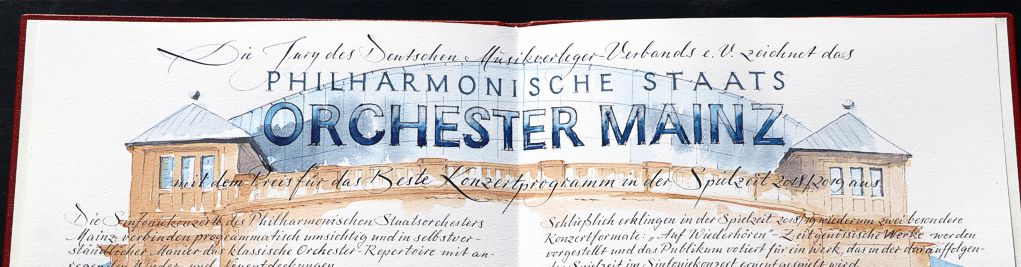 Die Jury des Deutschen Musikverleger-Verbands e.V. zeichnet das
PHILHARMONISCHE STAATS
ORCHESTER MAINZ
mit dem Preis für das Beste Konzertprogramm in der Spielzeit 2018/2019 aus.
Die Sinfoniekonzerte des Philharmonischen Staatsorchesters
Mainz verbinden programmatisch umsichtig und in selbstver-
ständlicher Manier das klassische Orchester-Repertoire mit an-
regenden Wieder- und Neuentdeckungen.
Schließlich erklingen in der Spielzeit 2018/19 wiederum zwei besondere
Konzertformate: „Auf Wiederhören"- Zeitgenössische Werke werden
vorgestellt und das Publikum votiert für ein Werk, das in der darauffolgen-
den Spielzeit im Sinfoniekonzert erneut gespielt wird.